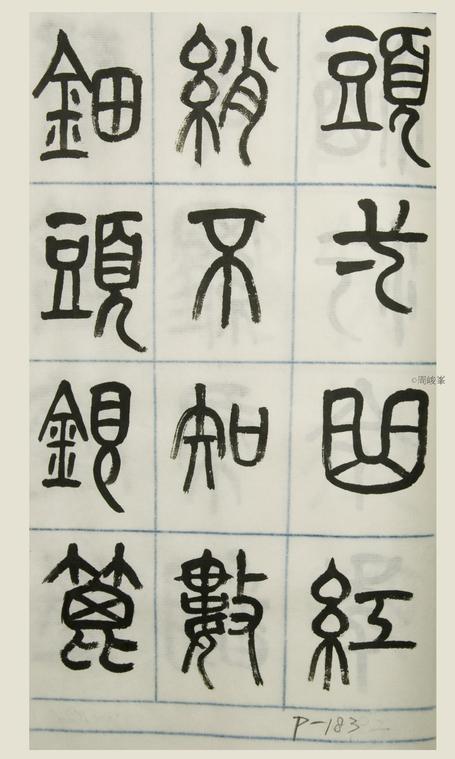 頭弋曲紅
綃不知數
鈿頭銀篦
P-183
©周峻峯